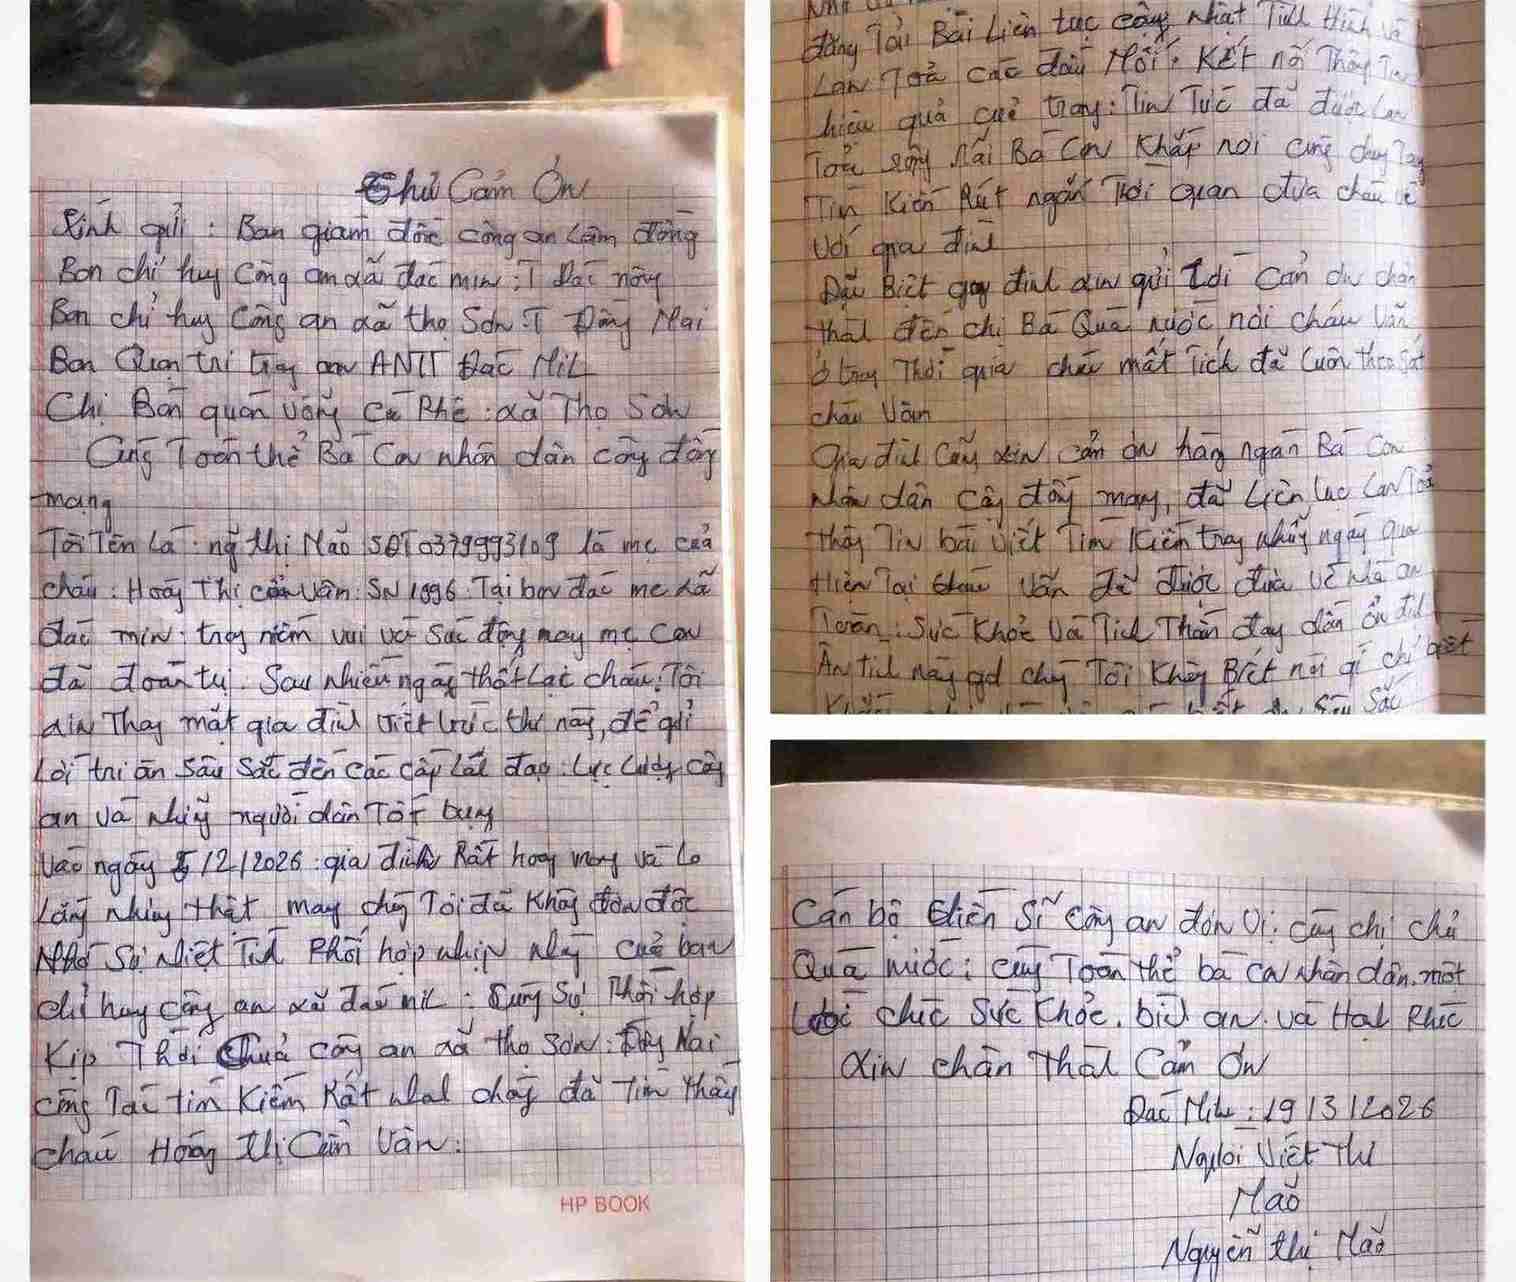 Thư Cảm Ơn
Kính gửi : Ban giám đốc công an Lâm đồng
Ban chỉ huy Công an xã đăc min : T Đăc nông
Ban chỉ huy Công an xã thọ Sơn . T Đồng Nai
Ban Quan trị trang an ANTT Đăc Mil
Chị Bán quán võng Cà Phê : xã Thọ Sơn
Cùng Toàn thể Bà Con nhân dân cộng đồng
mạng
Tôi Tên Là : ng thị Mão SĐT 0379993109 là mẹ của
cháu : Hoàng Thị Cẩm Vân : SN 1996 . Tại bon đăc me xã
đăc min . trong niềm vui và Súc động may mẹ con
đã đoàn tụ . Sau nhiều ngày thất Lạc cháu . Tôi
xin Thay mặt gia đình viết bức thư này, để gửi
Lời tri ân Sâu Sắc đến các cấp Lãnh đạo : Lực Lượng công
an và những người dân Tốt bụng
Vào ngày 5/2/2026 : gia đình Rất hoang mang và lo
Lắng nhưng thật may chúng Tôi đã Không đơn độc
Nhờ Sự nhiệt Tình Phối hợp nhịp nhàng của ban
chỉ huy công an xã đăc mil : Cùng Sự Phối hợp
Kịp Thời của công an xã thọ Sơn : Đồng Nai
công Tác tìm Kiếm Rất nhanh chóng đã Tìm thấy
cháu Hoàng Thị Cẩm Vân .
đăng Tải Bài Liên tục cập nhật Tình Hình và
Lan Toả các đầu Mối . Kết nối Thông Tin
hiệu quả của trang : Tin Tức đã được Lan
Toả rộng Rãi Bà Con Khắp nơi cùng chung Tay
Tìm Kiếm Rút ngắn Thời gian đưa cháu về
với gia đình
Đặc Biệt gia đình xin gửi Lời Cảm ơn chân
thành đến chị Bá Quán nước nơi cháu Vân
ở trong Thời gian cháu mất Tích đã Luôn theo sát
cháu Vân
Gia đình Cũng xin cảm ơn hàng ngàn Bà Con
nhân dân cộng đồng mạng, đã Liên Lục Lan Toả
thông Tin bài viết Tìm Kiếm trong những ngày qua
Hiện Tại cháu Vân đã được đưa về nhà an
Toàn : Sức Khoẻ Và Tinh Thần đang dần ổn định
Ân tình này gđ chúng Tôi Không Biết nói gì chỉ biết
Sâu Sắc
Cán bộ Chiến Sĩ công an đơn Vị : cùng chị chủ
Quán nước : cùng Toàn thể bà con nhân dân . một
Lời chúc Sức Khỏe . bình an . và Hạnh Phúc
Xin chân thành Cảm ơn
Đăc Mil : 19/3/2026
Người Viết Thư
Mão
Nguyễn thị Mão
HP BOOK